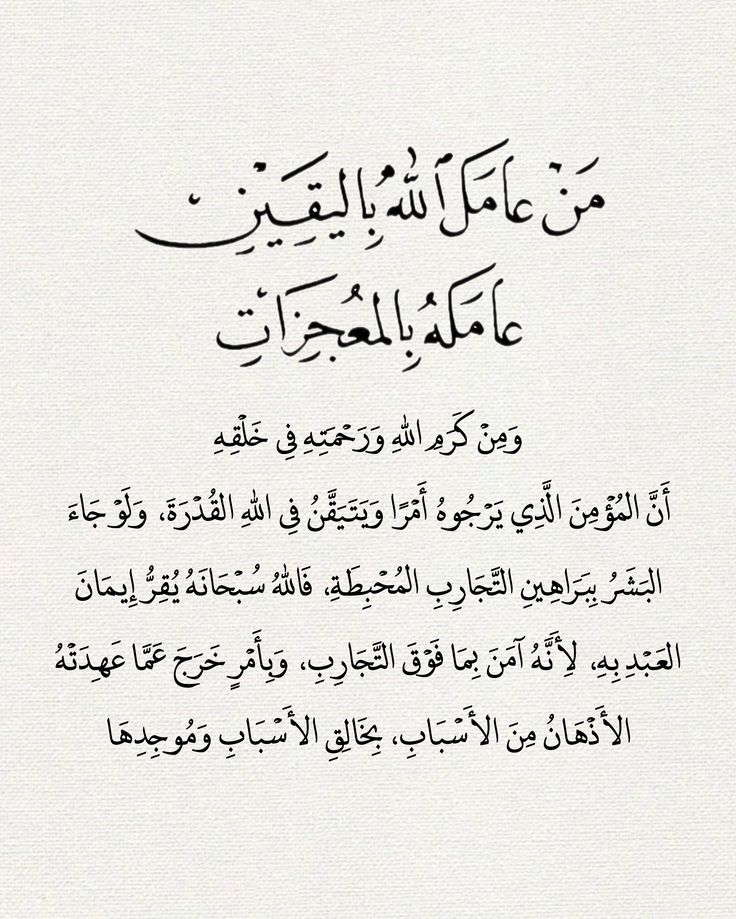 مَنْ عامَلَ ٱللهُ بِاليَقِيْنِ
عامَلَهُ بِالمُعْجِزَاتِ
وَمِنْ كَرَمِ اللهِ وَرَحْمَتِهِ فِي خَلْقِهِ
أَنَّ المُؤْمِنَ الَّذِي يَرْجُوهُ أَمْرًا وَيَتَيَقَّنُ فِي اللهِ القُدْرَةَ، وَلَوْ جَاءَ
البَشَرُ بِبَرَاهِينِ التَّجَارِبِ المُحْبِطَةِ، فَاللهُ سُبْحَانَهُ يُقِرُّ إِيمَانَ
العَبْدِ بِهِ، لِأَنَّهُ آمَنَ بِمَا فَوْقَ التَّجَارِبِ، وَبِأَمْرٍ خَرَجَ عَمَّا عَهِدَتْهُ
الأَذْهَانُ مِنَ الأَسْبَابِ، بِخَالِقِ الأَسْبَابِ وَمُوجِدِهَا